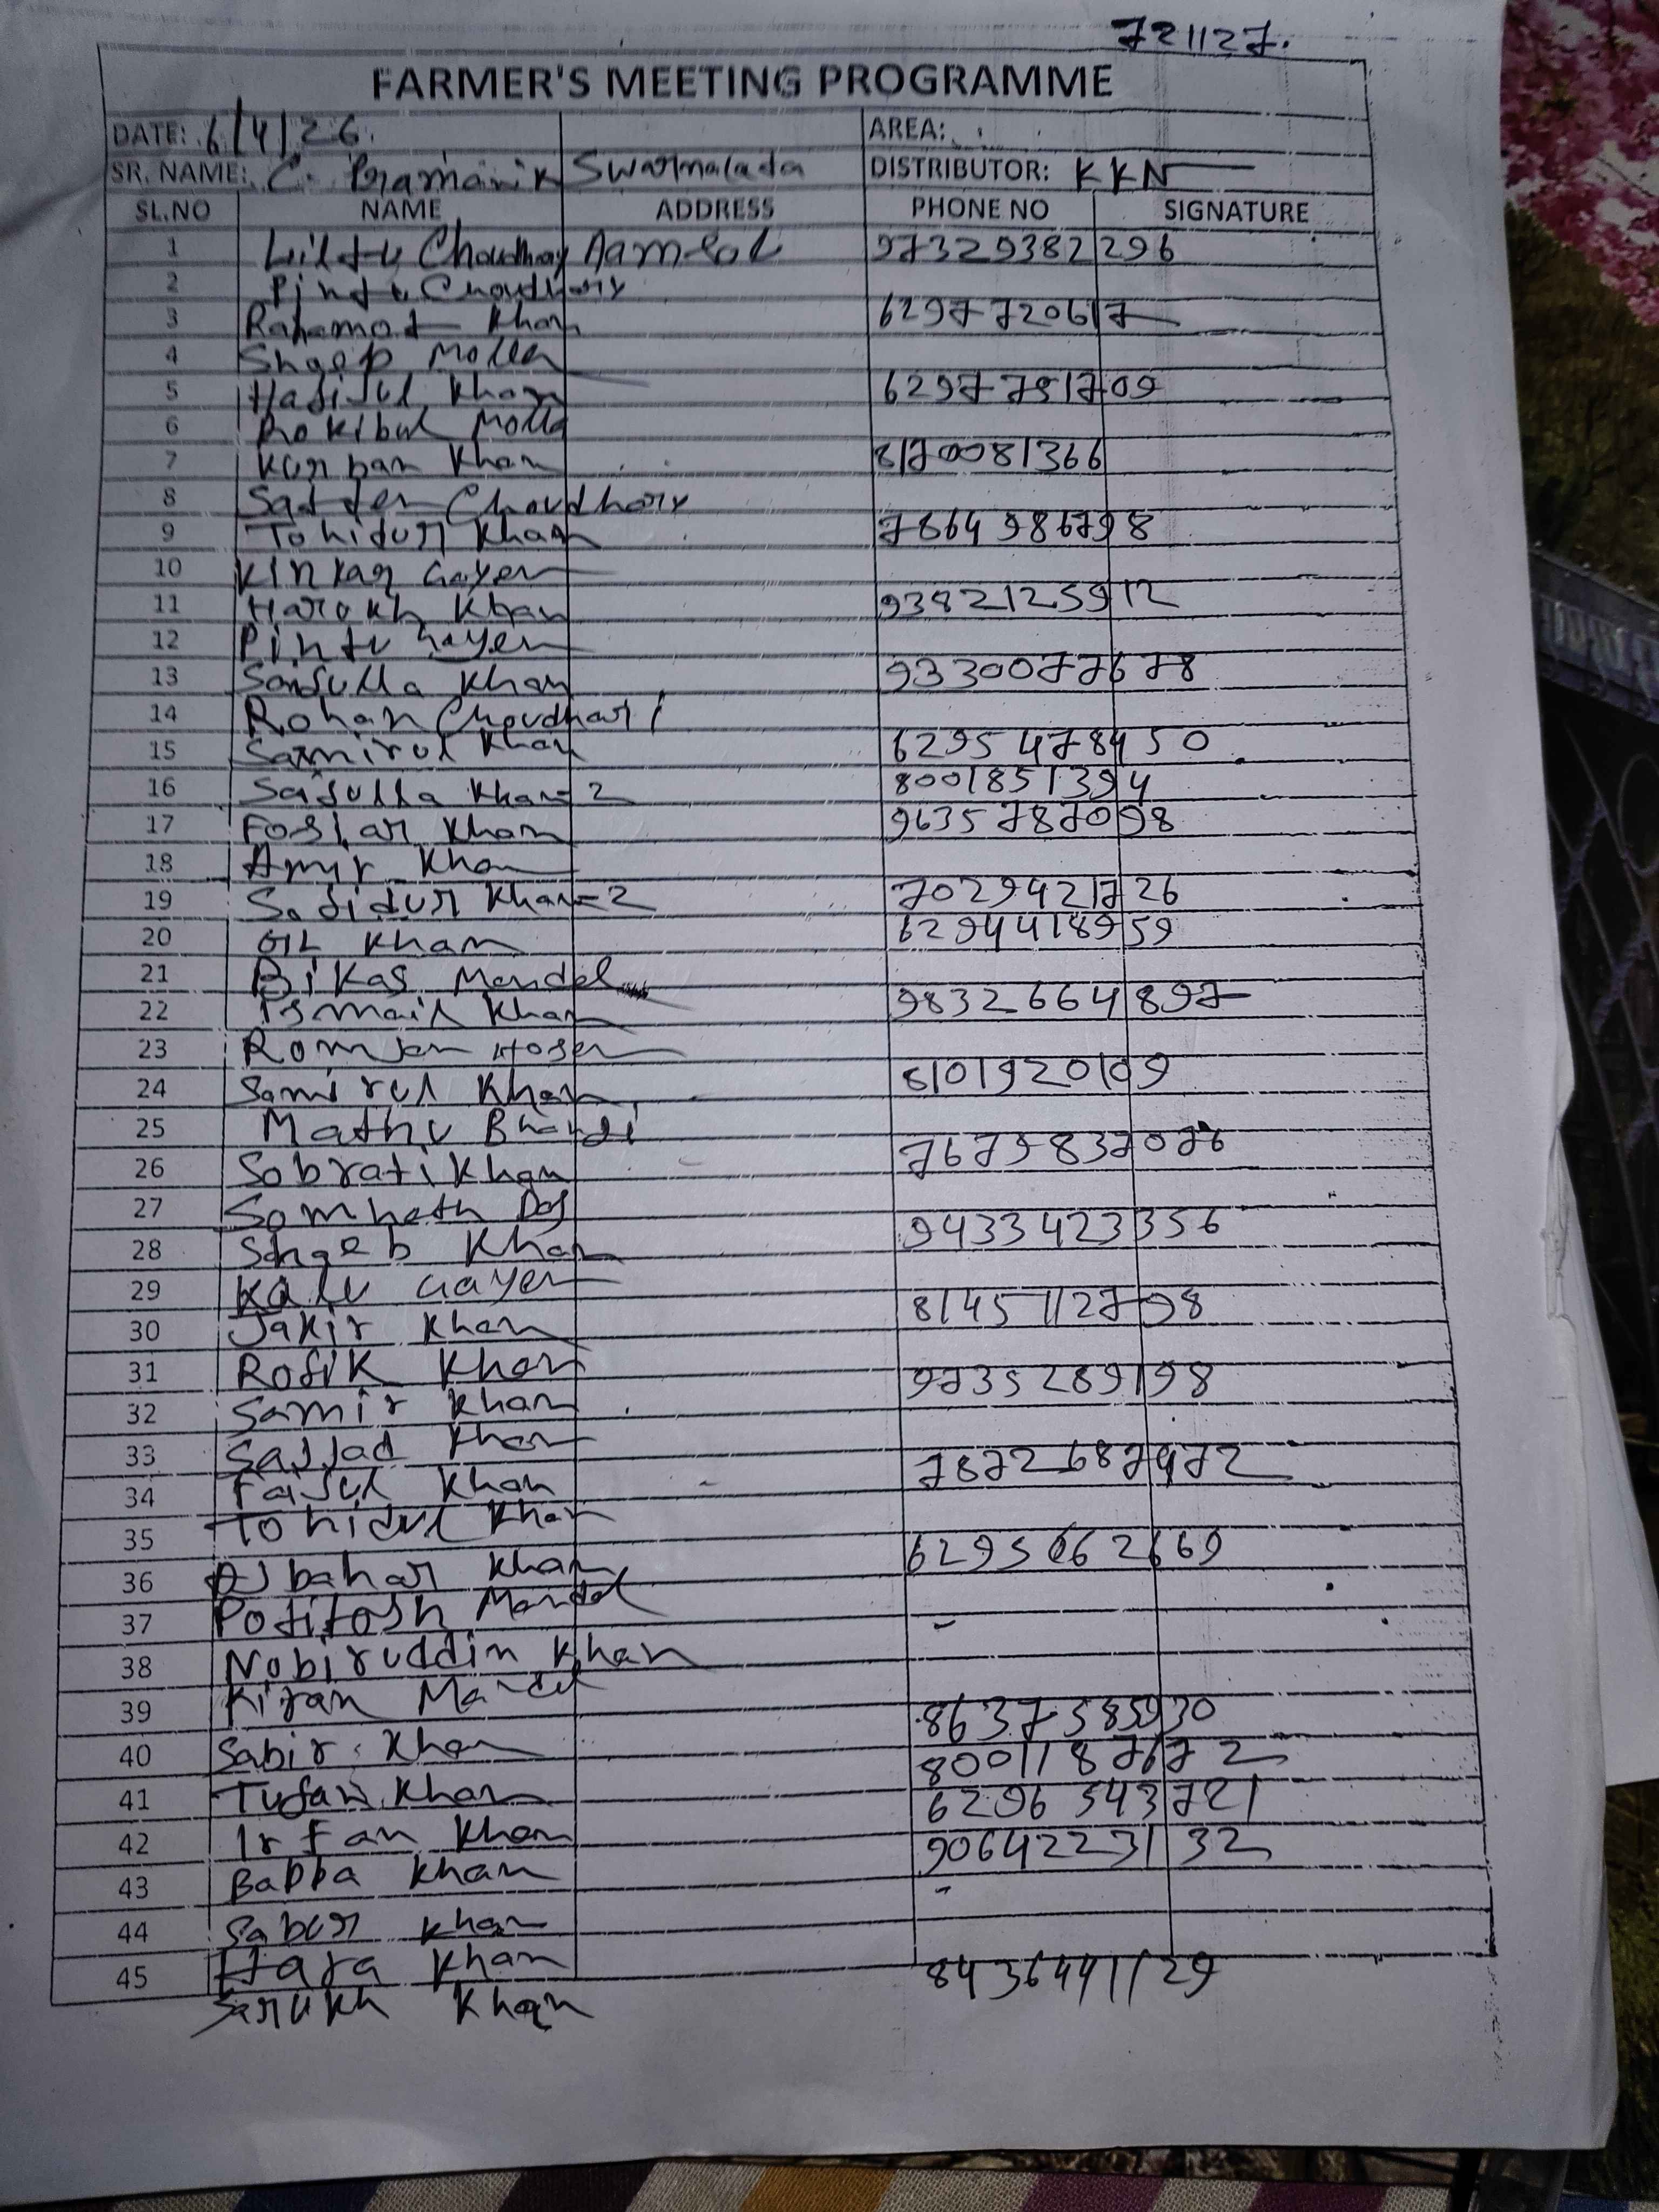 721127.
FARMER'S MEETING PROGRAMME
DATE: 6/4/26. AREA:
SR. NAME: C. Pramanik Swarnalada DISTRIBUTOR: KKN
SL.NO NAME ADDRESS PHONE NO SIGNATURE
1 Liltu Choudhay 97329382296
2 Pintu Choudhary
3 Rahamot Khan 6297720617
4 Shoep Molla
5 Hafijul Khan 6297781709
6 Rokibul Molla
7 Kurban Khan 8170081366
8 Satten Choudhary
9 Tohidur Khan 7864986798
10 Kinkar Gayen
11 Harukh Khan 93821259112
12 Pintu Gayen
13 Saifulla Khan 9330077678
14 Rohan Choudhari
15 Samirul Khan 6295478450
16 Saifulla Khan-2 8001851394
17 Fosiar Khan 9635787098
18 Amir Khan
19 Safidur Khan-2 7029421726
20 Khan 6294418959
21 Bikas Mondol
22 Ismail Khan 9832664897
23 Romjan Hosen
24 Samirul Khan 8101920109
25 Mathu
26 Sobrati Khan 7679837076
27 Somnath Das
28 Shoeb Khan 9433423356
29 Kalu Gayen
30 Jakir Khan 8145112798
31 Rofik Khan
32 Samir Khan 9735289198
33 Sajjad Khan
34 Faijul Khan 7872687472
35 Tohidul Khan
36 Ajbahar Khan 6295662669
37 Potitosh Mondol -
38 Nobiruddin Khan
39 Kiran Mandal 8637585930
40 Sabir Khan 8001187672
41 Tufan Khan 6296543721
42 Irfan Khan 9064223132
43 Bappa Khan -
44 Sabur Khan
45 Hara Khan 8436441129
Sarukh Khan